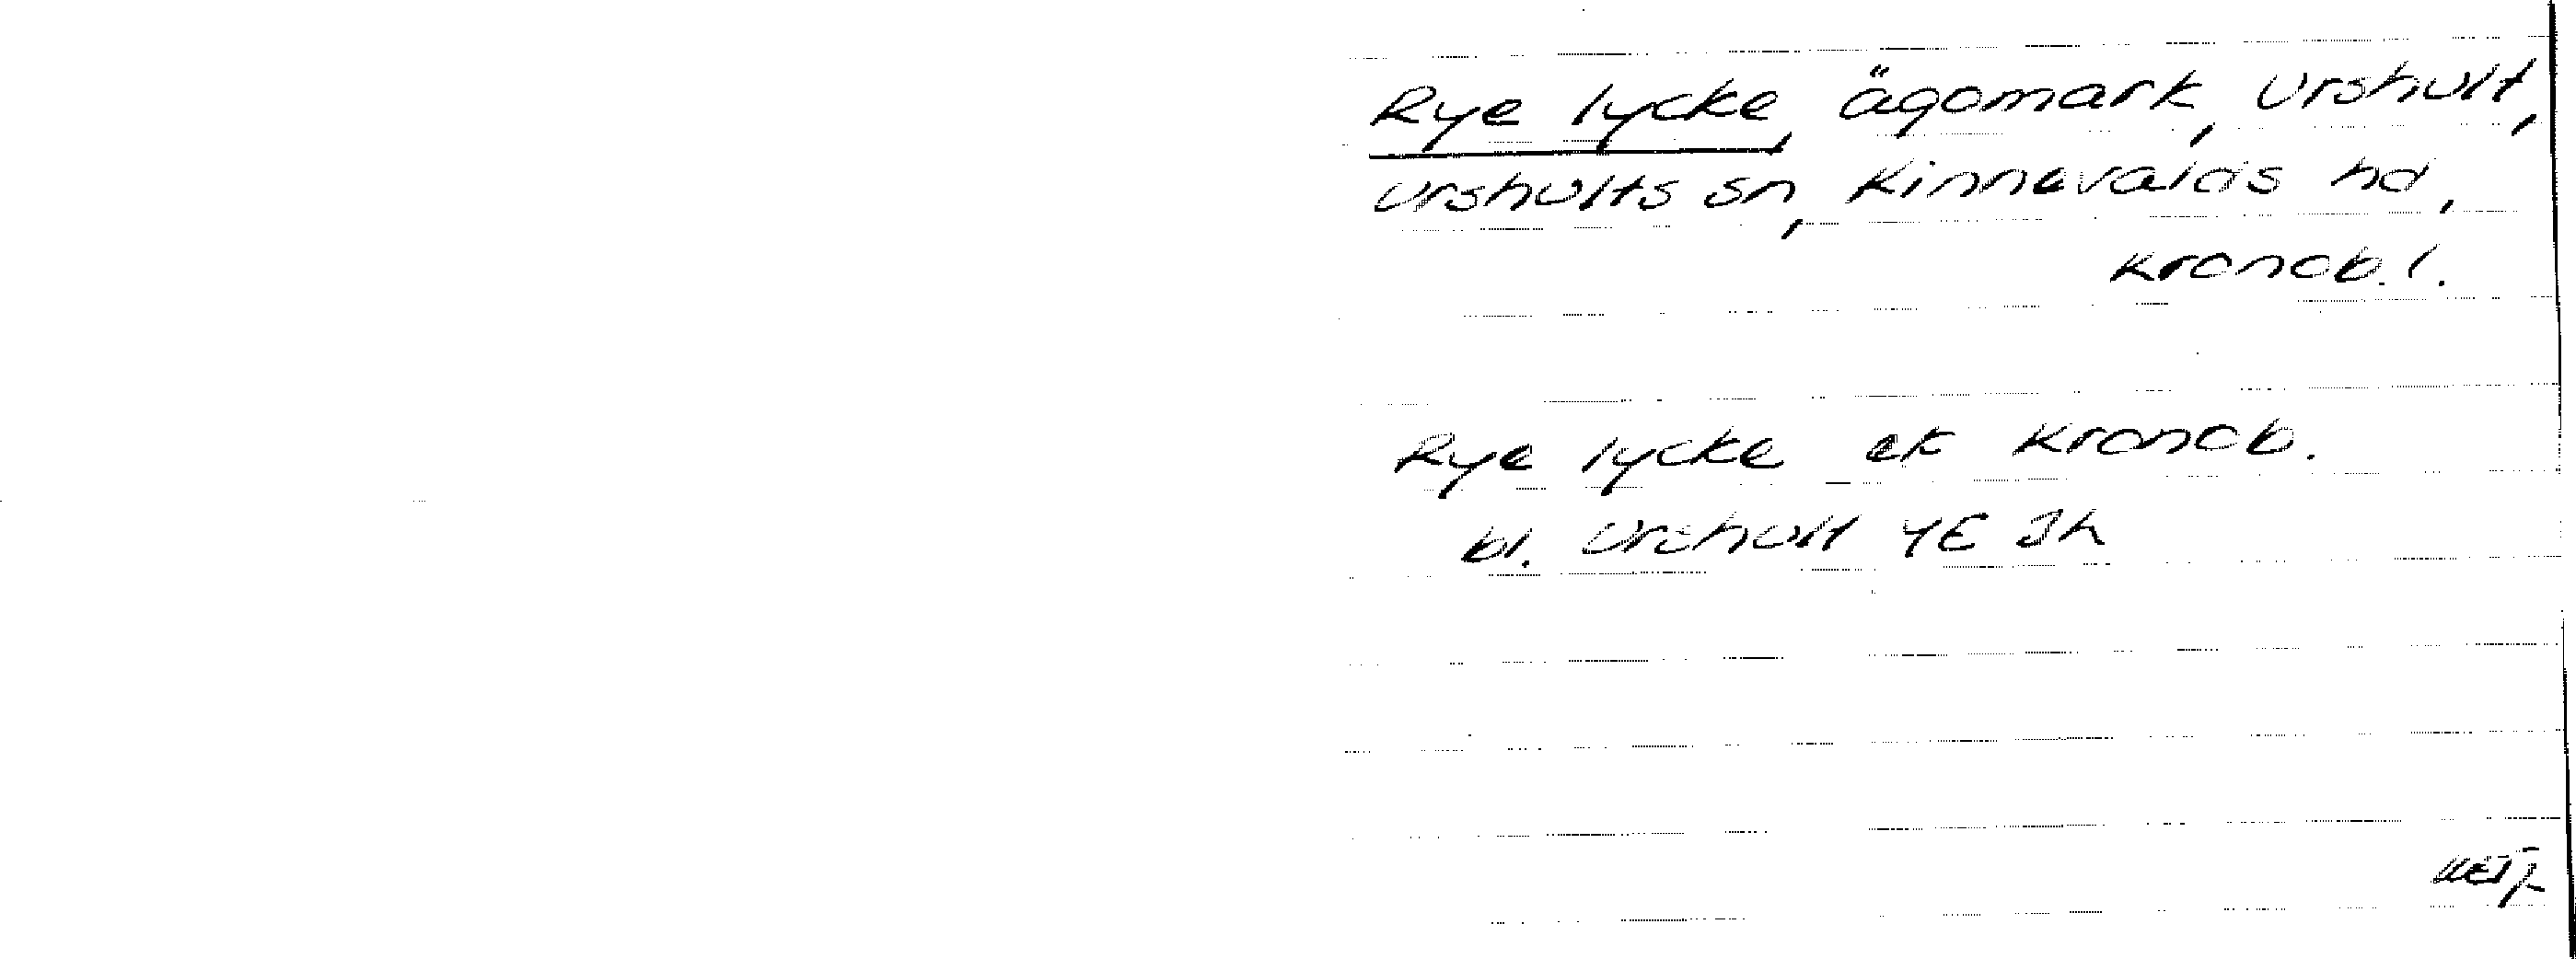 Rye lycke, ägomark, Urshult,
Urshults sn, Kinnevalds hd,
Kronob. l.
Rye lycke ek Kronob.
bl. Urshult 4E Jh